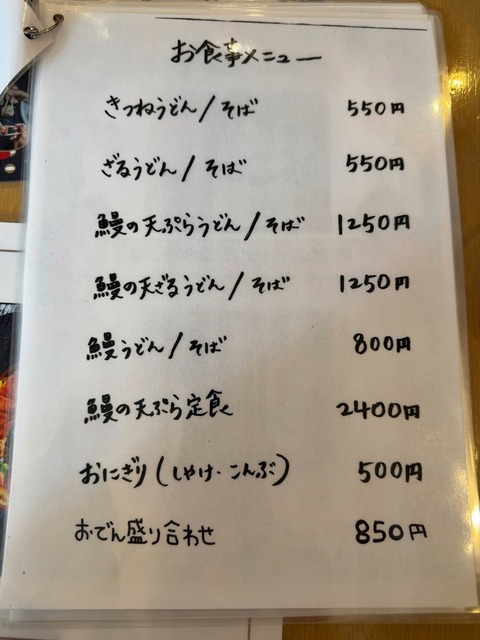 お食事メニュー
きつねうどん/そば 550円
ざるうどん/そば 550円
鰻の天ぷらうどん/そば 1250円
鰻の天ざるうどん/そば 1250円
鰻うどん/そば 800円
鰻の天ぷら定食 2400円
おにぎり(しゃけ・こんぶ) 500円
おでん盛り合わせ 850円